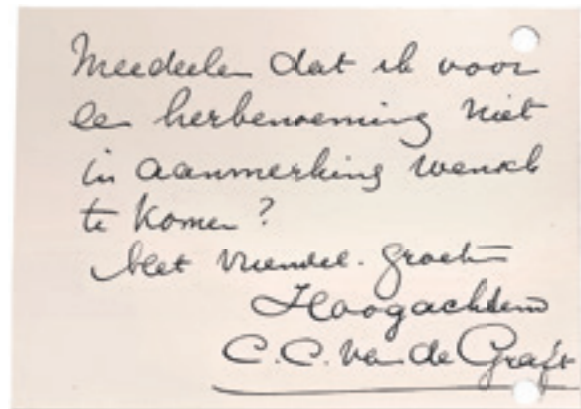 meedeelen dat ik voor
een herbenoeming niet
in aanmerking wensch
te komen?
Met vriendel. groeten
Hoogachtend
C.C. van de Graft